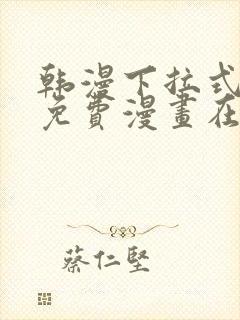 韩漫下拉式
免費漫畫在
蔡仁堅